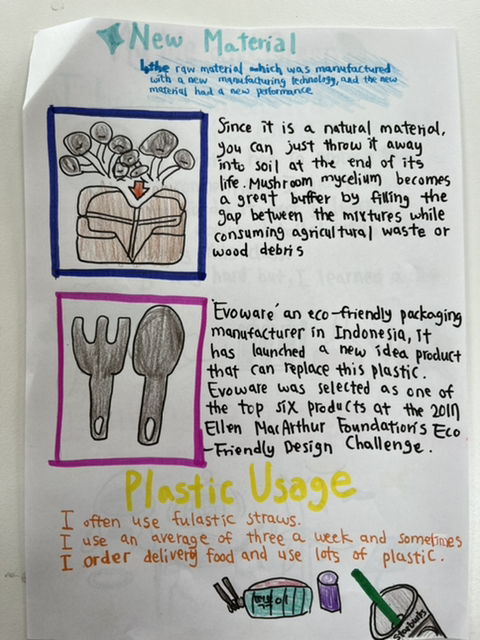 New Material
↳the raw material which was manufactured
with a new manufacturing technology, and the new
material had a new performance
Since it is a natural material,
you can just throw it away
into soil at the end of its
life. Mushroom mycelium becomes
a great buffer by filling the
gap between the mixtures while
consuming agricultural waste or
wood debris
'Evoware' an eco-friendly packaging
manufacturer in Indonesia, it
has launched a new idea product
that can replace this plastic.
Evoware was selected as one of
the top six products at the 2017
Ellen MacArthur Foundation's Eco
-Friendly Design Challenge.
Plastic Usage
I often use fulastic straws.
I use an average of three a week and sometimes
I order delivery food and use lots of plastic.